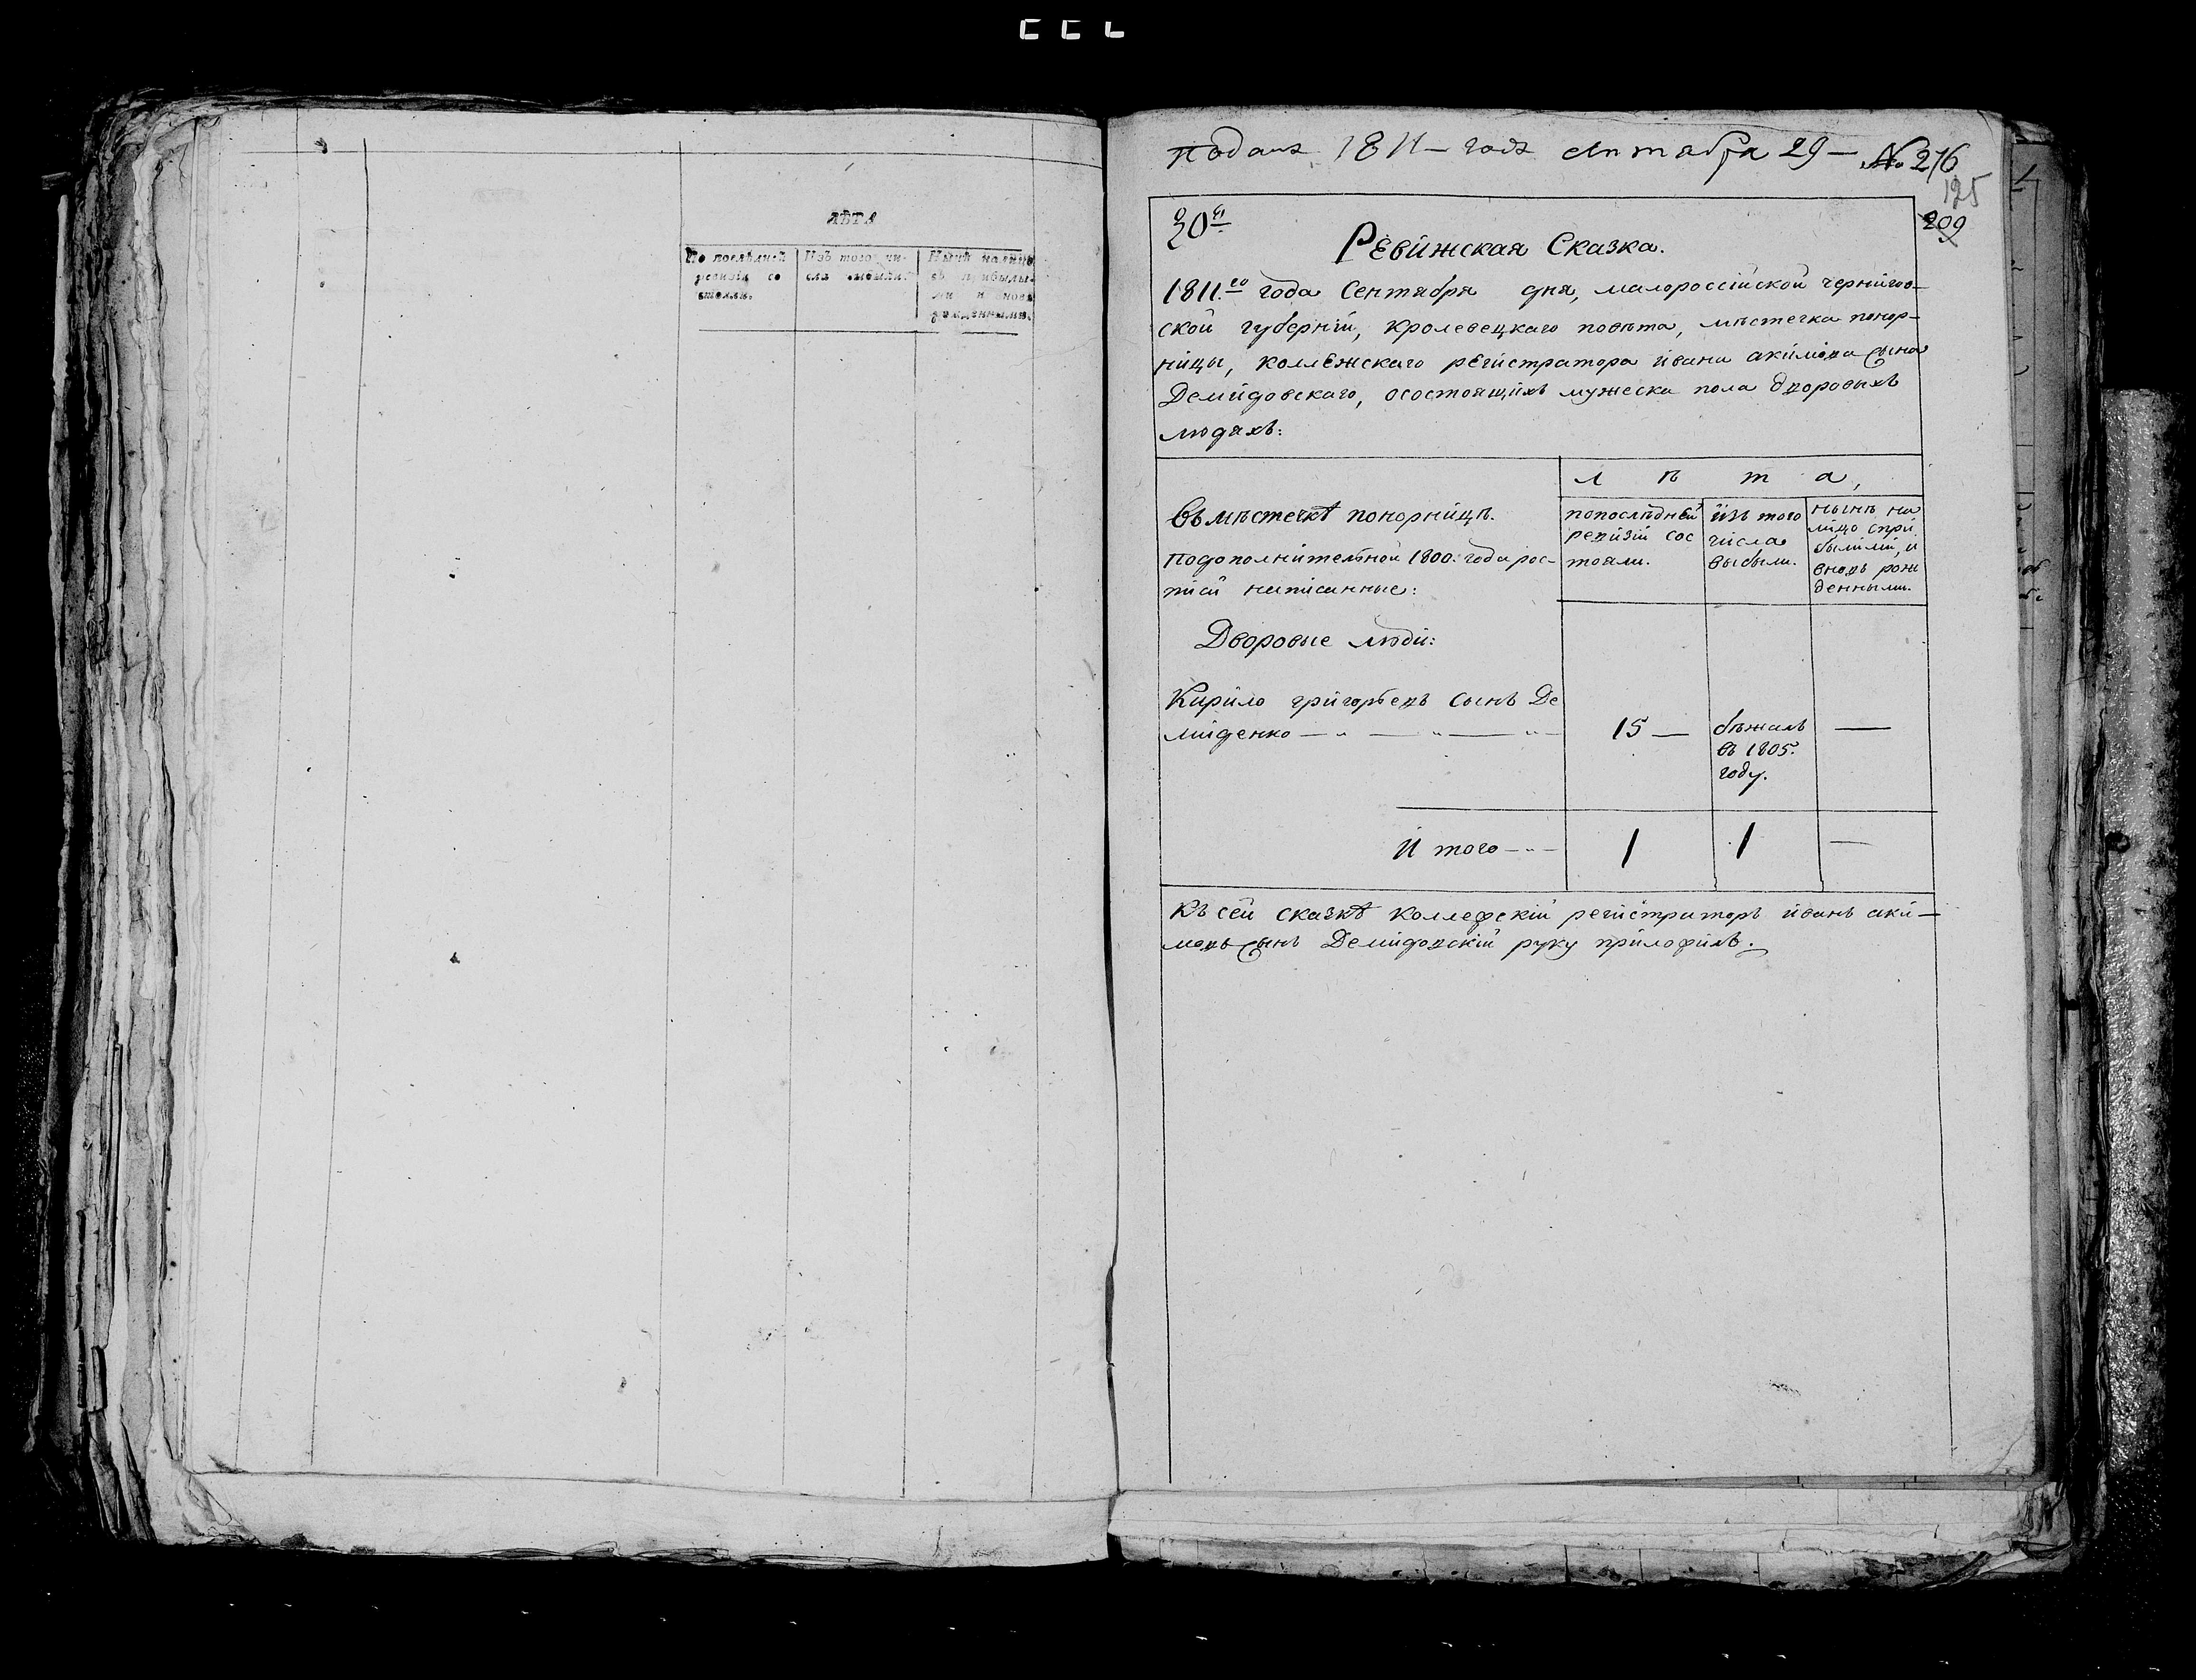 ЛѢТА
По послѣдней ревизіи со стояли.
Изъ того чи- сла выбыли.
Нынѣ налицо съ прибылы- ми и вновь рожденными.
поданъ 1811 – года сентября 29 – № 276
125
209
30й
Ревижская Сказка.
1811.го года Сентября дня, малороссійской чернигов-
ской губерніи, кролевецкаго повѣта, мѣстечка понор-
ницы, коллежскаго регистратора ивана акимова сына
Демидовскаго, осостоящихъ мужеска пола дворовыхъ
людяхъ:
л ѣ т а,
въ мѣстечкѣ понорницѣ.
подополнителной 1800. года рос-
писи написанные:
попослѣдней
ревизіи сос
тояли.
изъ того
числа
выбыли.
нынѣ на
лицо спри
былими, и
вновь рож
денными.
Дворовые люди:
Кирило григорьевъ сынъ Де
миденко — „ — „ — „ —
15 —
бѣжалъ
въ 1805.
году.
—
и того — „ —
1
1
—
Къ сей сказкѣ коллежскій регистраторъ иванъ аки–
мовъ сынъ Демидовскій руку приложилъ.